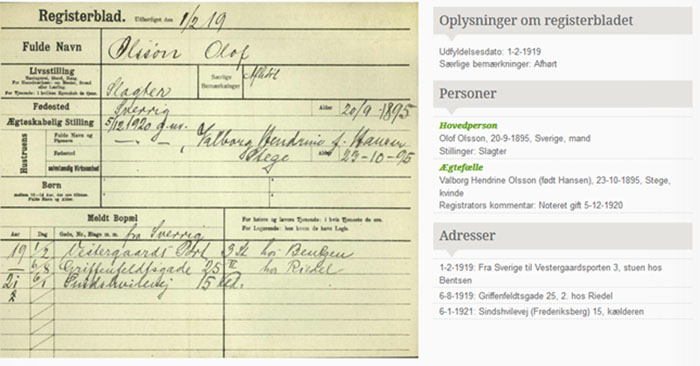 Registerblad. Udfærdiget den 1/2 19
Fulde Navn Olsson Olof
Livsstilling
Slagter
Særlige
Bemærkninger
Fødested
Sverrig
Alder 20/9 - 1895
Ægteskabelig Stilling
5/12 1920 g.m.
Hustruens
Fulde Navn og
Pigenavn
Valborg Hendrine f. Hansen
Fødested
Stege
Alder 23-10-95
selvstændig Virksomhed
Børn
Meldt Bopæl
For huslige og lavere Tjenende: i hvis Tjeneste de ere.
For Logerende: hos hvem de have Logis.
fra Sverrig
Aar Dag Gade, Nr., Etage m. m.
19 1/2 Vestergaards Port 3 St hos Bentzen
6/8 Griffenfeldtsgade 25 II hos Riedel
21 6/1 Sindshvilevej 15 Kld.
Oplysninger om registerbladet
Udfyldelsesdato: 1-2-1919
Særlige bemærkninger: Afhørt
Personer
Hovedperson
Olof Olsson, 20-9-1895, Sverige, mand
Stillinger: Slagter
Ægtefælle
Valborg Hendrine Olsson (født Hansen), 23-10-1895, Stege,
kvinde
Registrators kommentar: Noteret gift 5-12-1920
Adresser
1-2-1919: Fra Sverige til Vestergaardsporten 3, stuen hos
Bentsen
6-8-1919: Griffenfeldtsgade 25, 2. hos Riedel
6-1-1921: Sindshvilevej (Frederiksberg) 15, kælderen